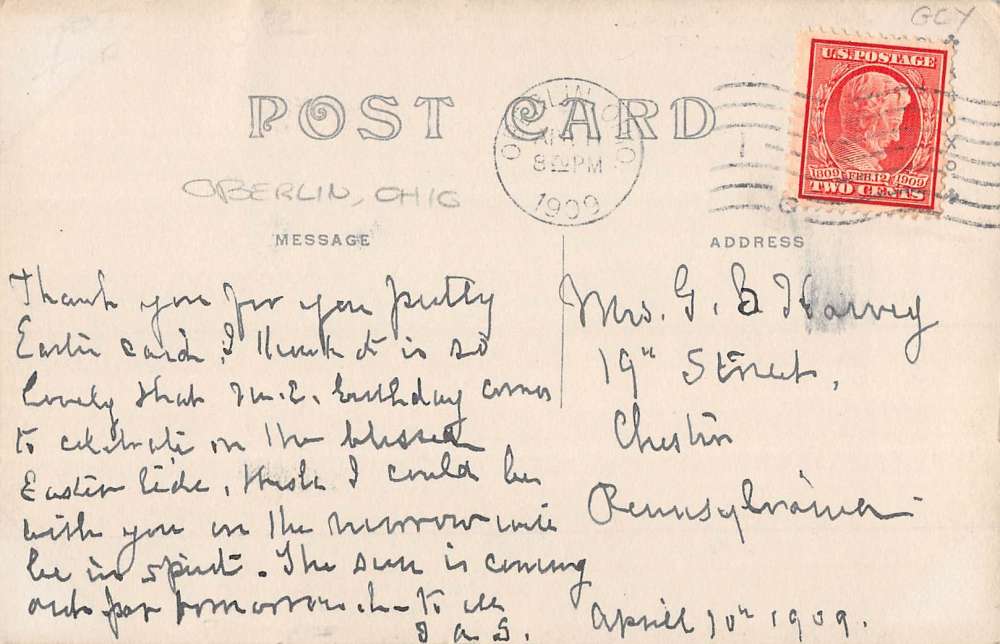 GCY
U.S. POSTAGE
1809 FEB. 12 1909
TWO CENTS
POST CARD
OBERLIN OHIO
APR 11
8 PM
1909
OBERLIN, OHIO
MESSAGE
Thank you for you pretty
Easter card, I think it is so
lovely that M.E. birthday comes
to celebrate on the blessed
Easter tide, Wish I could be
with you on the morrow will
be in spirit. The sun is coming
out for tomorrow to us
ADDRESS
Mrs. G. B Harvey
19th Street,
Chester
Pennsylvania
April 10th 1909.